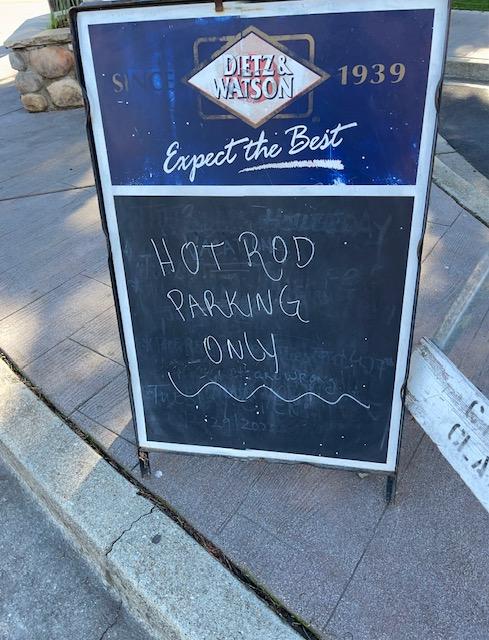 SINCE
DIETZ &
WATSON
1939
Expect the Best
HOT ROD
PARKING
ONLY